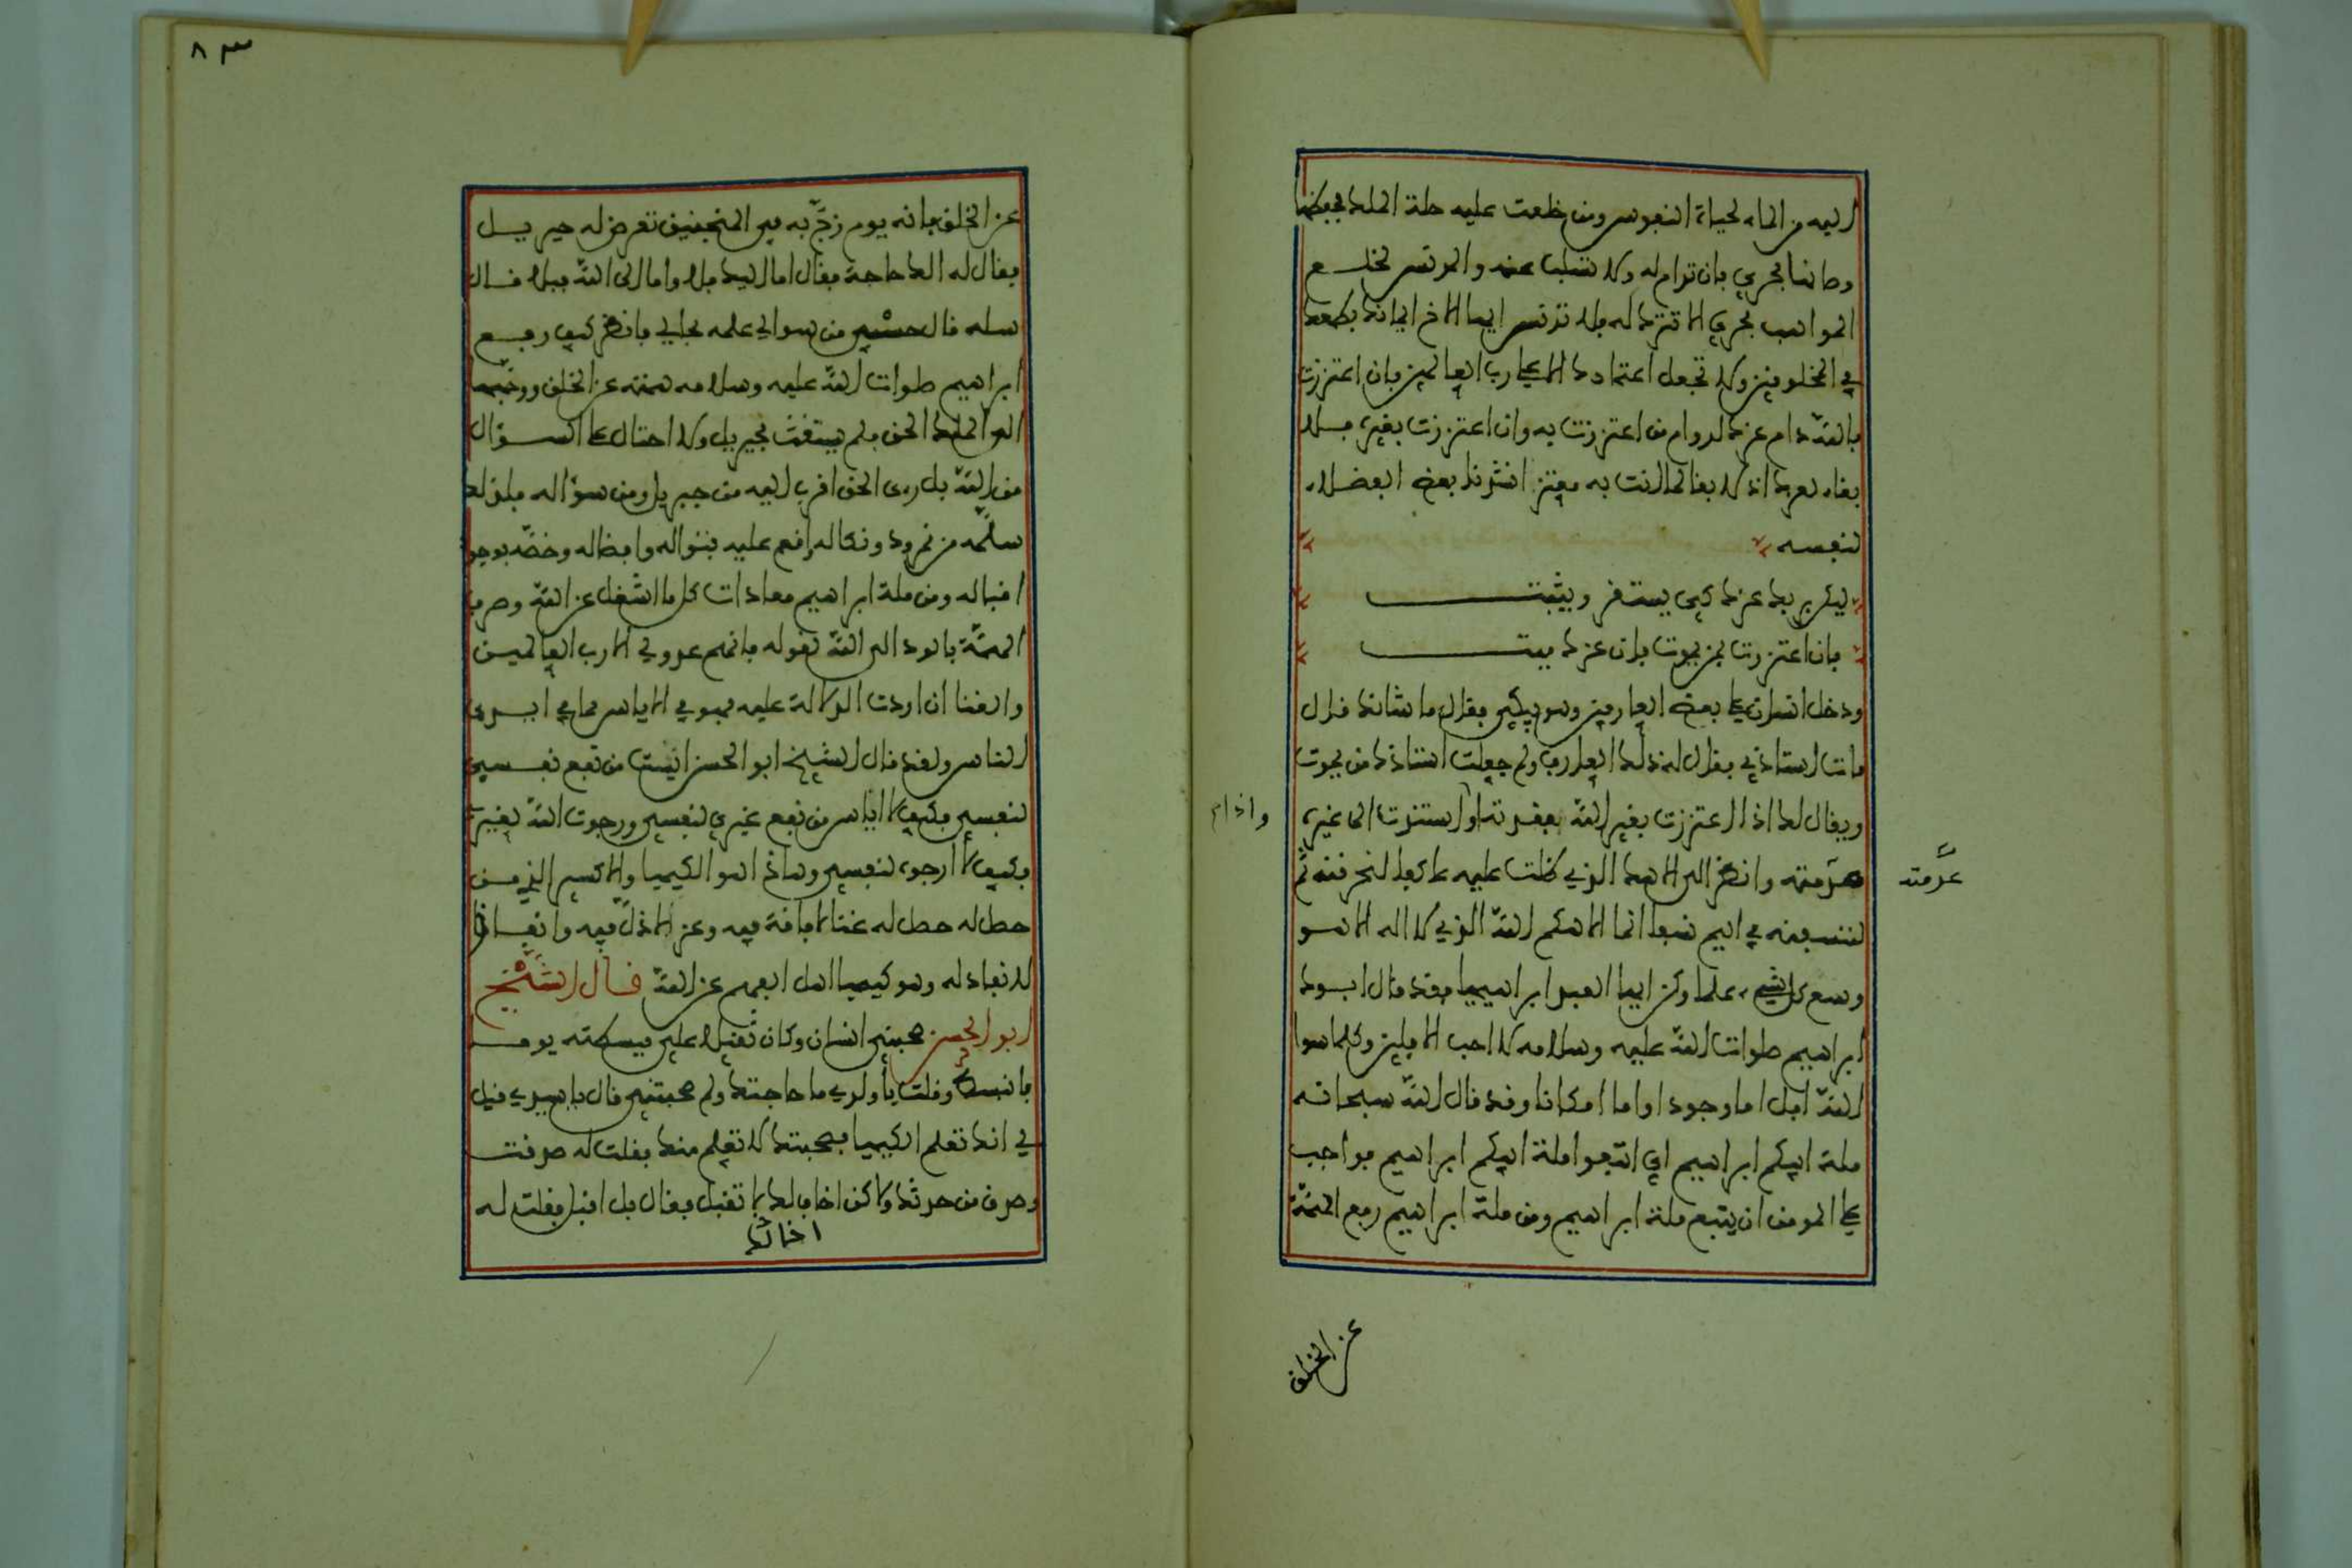 اليه من الماء لحياة النفوس ومن خلعت عليه حلة الملك فحفظها
وصانها فحري بان تدام له ولا تسلب عنه والمدنس لخلع
المواهب فحري الا تترك له فلا تدنس ايها الاخ ايمانك بطمعك
في المخلوقين ولا تجعل اعتمادك الا على رب العالمين فان اعتززت
بالله دام عزك لدوام من اعتززت به وان اعتززت بغيره فلا
بقاء لعزك اذ لا بقاء لما انت به معتز انشدنا بعض الفضلاء
لنفسه
ليكن بربك عزك كي يستقر ويثبت
فان اعتززت بمن يموت فان عزك ميت
ودخل انسان على بعض العارفين وهو يبكي فقال ما شانك قال
مات استاذي فقال له ذلك العارف ولم جعلت استاذك من يموت
ويقال لك اذا اعتززت بغير الله ففقدته او استندت الى غيره
عدمته وانظر الى الاهك الذي ظلت عليه عاكفا لنحرقنه ثم
لننسفنه في اليم نسفا انما الاهكم الله الذي لا اله الا هو
وسع كل شيء علما وكن ايها العبد ابراهيميا فقد قال ابوك
ابراهيم صلوات الله عليه وسلامه لا احب الافلين وكل ما سوا
الله افل اما وجودا واما امكانا وقد قال الله سبحانه
ملة ابيكم ابراهيم اي اتبعوا ملة ابيكم ابراهيم فواجب
على المومن ان يتبع ملة ابراهيم ومن ملة ابراهيم رفع الهمة
عن الخلق
واذا م
عدمته
٨٣
عن الخلق فانه يوم زج به في المنجنيق تعرض له جبريل
فقال له الك حاجة فقال اما اليك فلا واما الى الله فبلا قال
سله قال حسبي من سوالي علمه بحالي فانظر كيف رفع
ابراهيم صلوات الله عليه وسلامه همته عن الخلق ووجهها
الى الملك الحق فلم يستغث بجبريل ولا احتال على السؤال
من الله بل رءى الحق اقرب اليه من جبريل ومن سؤاله فلذلك
سلمه من نمرود ونكاله وانعم عليه بنواله وافضاله وخصه بوجود
اقباله ومن ملة ابراهيم معادات كل ما اشغل عن الله وصرف
الهمة بالود الى الله لقوله فانهم عدو لي الا رب العالمين
والغنا ان اردت الدلالة عليه فهو في الاياس مما في ايدي
الناس ولقد قال الشيخ ابو الحسن ايست من نفع نفسي
لنفسي فكيف لا اياس من نفع غيري لنفسي ورجوت الله لغيري
فكيف لا ارجوه لنفسي وهاذا هو الكيميا والاكسير الذي من
حصل له حصل له غنا لا فاقة فيه وعز لا ذل فيه وانفاق
لا نفاد له وهو كيميا اهل الفهم عن الله قال الشيخ
ابو الحسن صحبني انسان وكان ثقيلا علي فبسطته يوما
فانبسط وقلت يا ولدي ما حاجتك ولم صحبتني قال يا سيدي قيل
لي انك تعلم الكيميا فصحبتك لاتعلم منك فقلت له صدقت
وصدق من حدثك ولاكن اخالك لا تقبل فقال بل اقبل فقلت له
اخالك